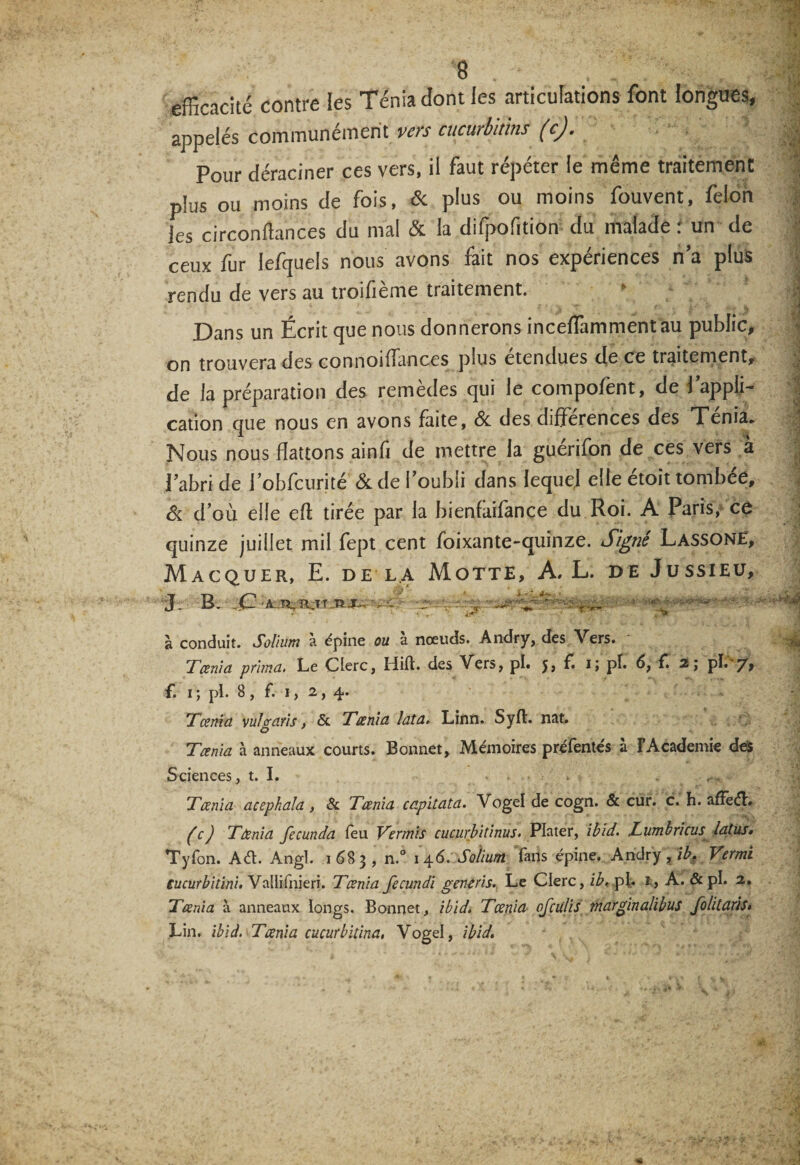 8
efficacité contre les Ténia dont les articulations ſont longues,
appelés communément vers cucurbitins (c).
Pour déraciner ces vers, il faut répéter le même traitement
plus ou moins de fois, & plus ou moins ſouvent, ſelon
les circonſtances du mal & la diſpoſition du malade : un de
ceux ſur leſquels nous avons fait nos expériences n'a plus
rendu de vers au troiſième traitement.
Dans un Écrit que nous donnerons inceſſamment au public,
on trouvera des connoiſſances plus étendues de ce traitement,
de la préparation des remèdes qui le compoſent, de l'appli-
cation que nous en avons faite, & des différences des Ténia.
Nous nous flattons ainſi de mettre la guériſon de ces vers à
l'abri de l'obſcurité & de l'oubli dans lequel elle étoit tombée,
& d'où elle eſt tirée par la bienfaiſance du Roi. A Paris, ce
quinze juillet mil ſept cent ſoixante-quinze. Signé LASSONE,
MACQUER, E. DE LA MOTTE, A. L. DE JUSSIEU,
J. B. CARRURI.
à conduit. Solium à épine ou à nœuds. Andry, des Vers.
Tænia prima. Le Clerc, Hiſt. des Vers, pl. 5, f. 1; pl. 6, f. 2; pl. 7,
f. 1; pl. 8, f. 1, 2, 4.
Tænia vulgaris, & Tænia lata. Linn. Syſt. nat.
Tænia à anneaux courts. Bonnet, Mémoires préſentés à l'Académie des
Sciences, t. I.
Tænia acephala, & Tænia capitata. Vogel de cogn. & cur. c. h. affect.
(c) Tænia fecunda ſeu Vermis cucurbitinus. Plater, ibid. Lumbricus latus.
Tyſon. Act. Angl. 1683, n.° 146. Solium ſans épine. Andry, ib. Vermi
cucurbitini. Valliſnieri. Tænia fecundi generis. Le Clerc, ib. pl. 1, A. & pl. 2.
Tænia à anneaux longs. Bonnet, ibid. Tænia oſculis marginalibus ſolitariis.
Lin. ibid. Tænia cucurbitina, Vogel, ibid.